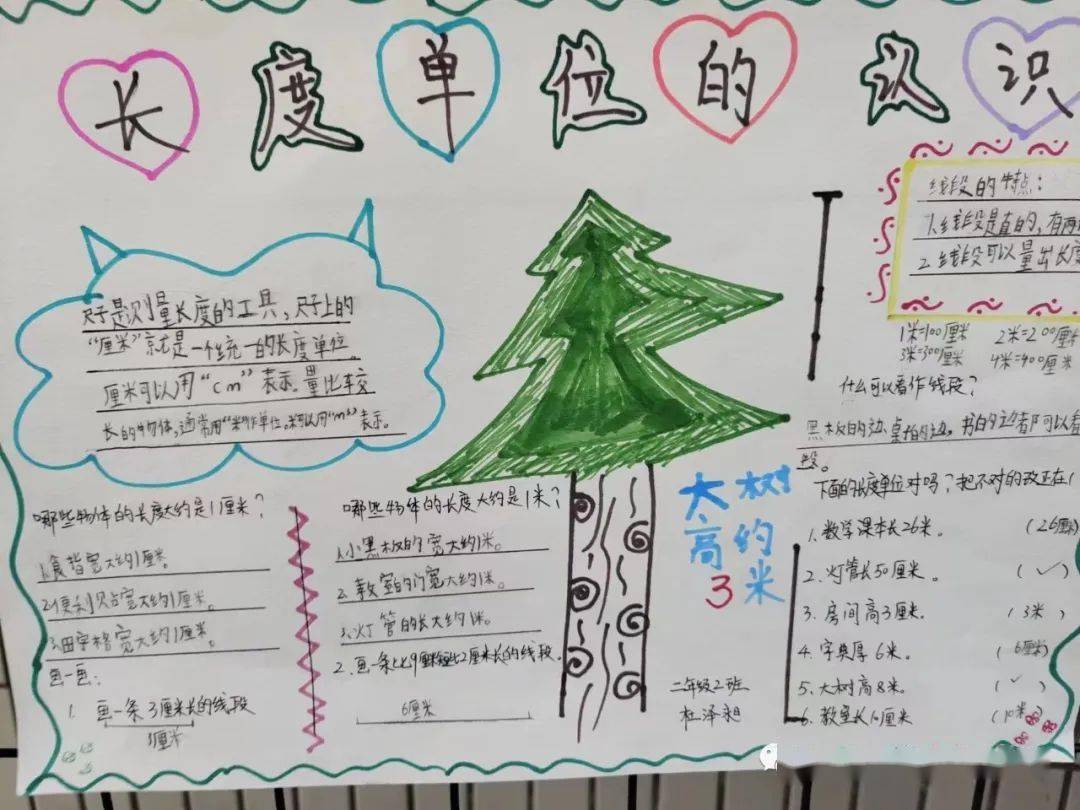 长度单位的认识
尺子是测量长度的工具，尺子上的
“厘米”就是一个统一的长度单位。
厘米可以用“cm”表示。量比较
长的物体，通常用“米”作单位。米可以用“m”表示。
哪些物体的长度大约是1厘米？
1.食指宽大约1厘米。
2.便利贴宽大约1厘米。
3.田字格宽大约1厘米。
画一画：
1. 画一条3厘米长的线段
3厘米
哪些物体的长度大约是1米？
1.小黑板的宽大约1米。
2.教室的门宽大约1米。
3.灯管的长大约1米。
2.画一条比9厘米短2厘米长的线段。
6厘米
大树
高约
3米
二年级2班
杜泽昶
线段的特点：
1.线段是直的，有两
2.线段可以量出长度
1米=100厘米 2米=200厘米
3米=300厘米 4米=400厘米
什么可以看作线段？
黑板的边、桌的边，书的边都可以看
段。
下面的长度单位对吗？把不对的改正在（
1.数学课本长26米。 （26厘米）
2.灯管长50厘米。 （✓）
3.房间高3厘米。 （3米）
4.字典厚6米。 （6厘米）
5.大树高8米。 （✓）
6.教室长10厘米 （10米）